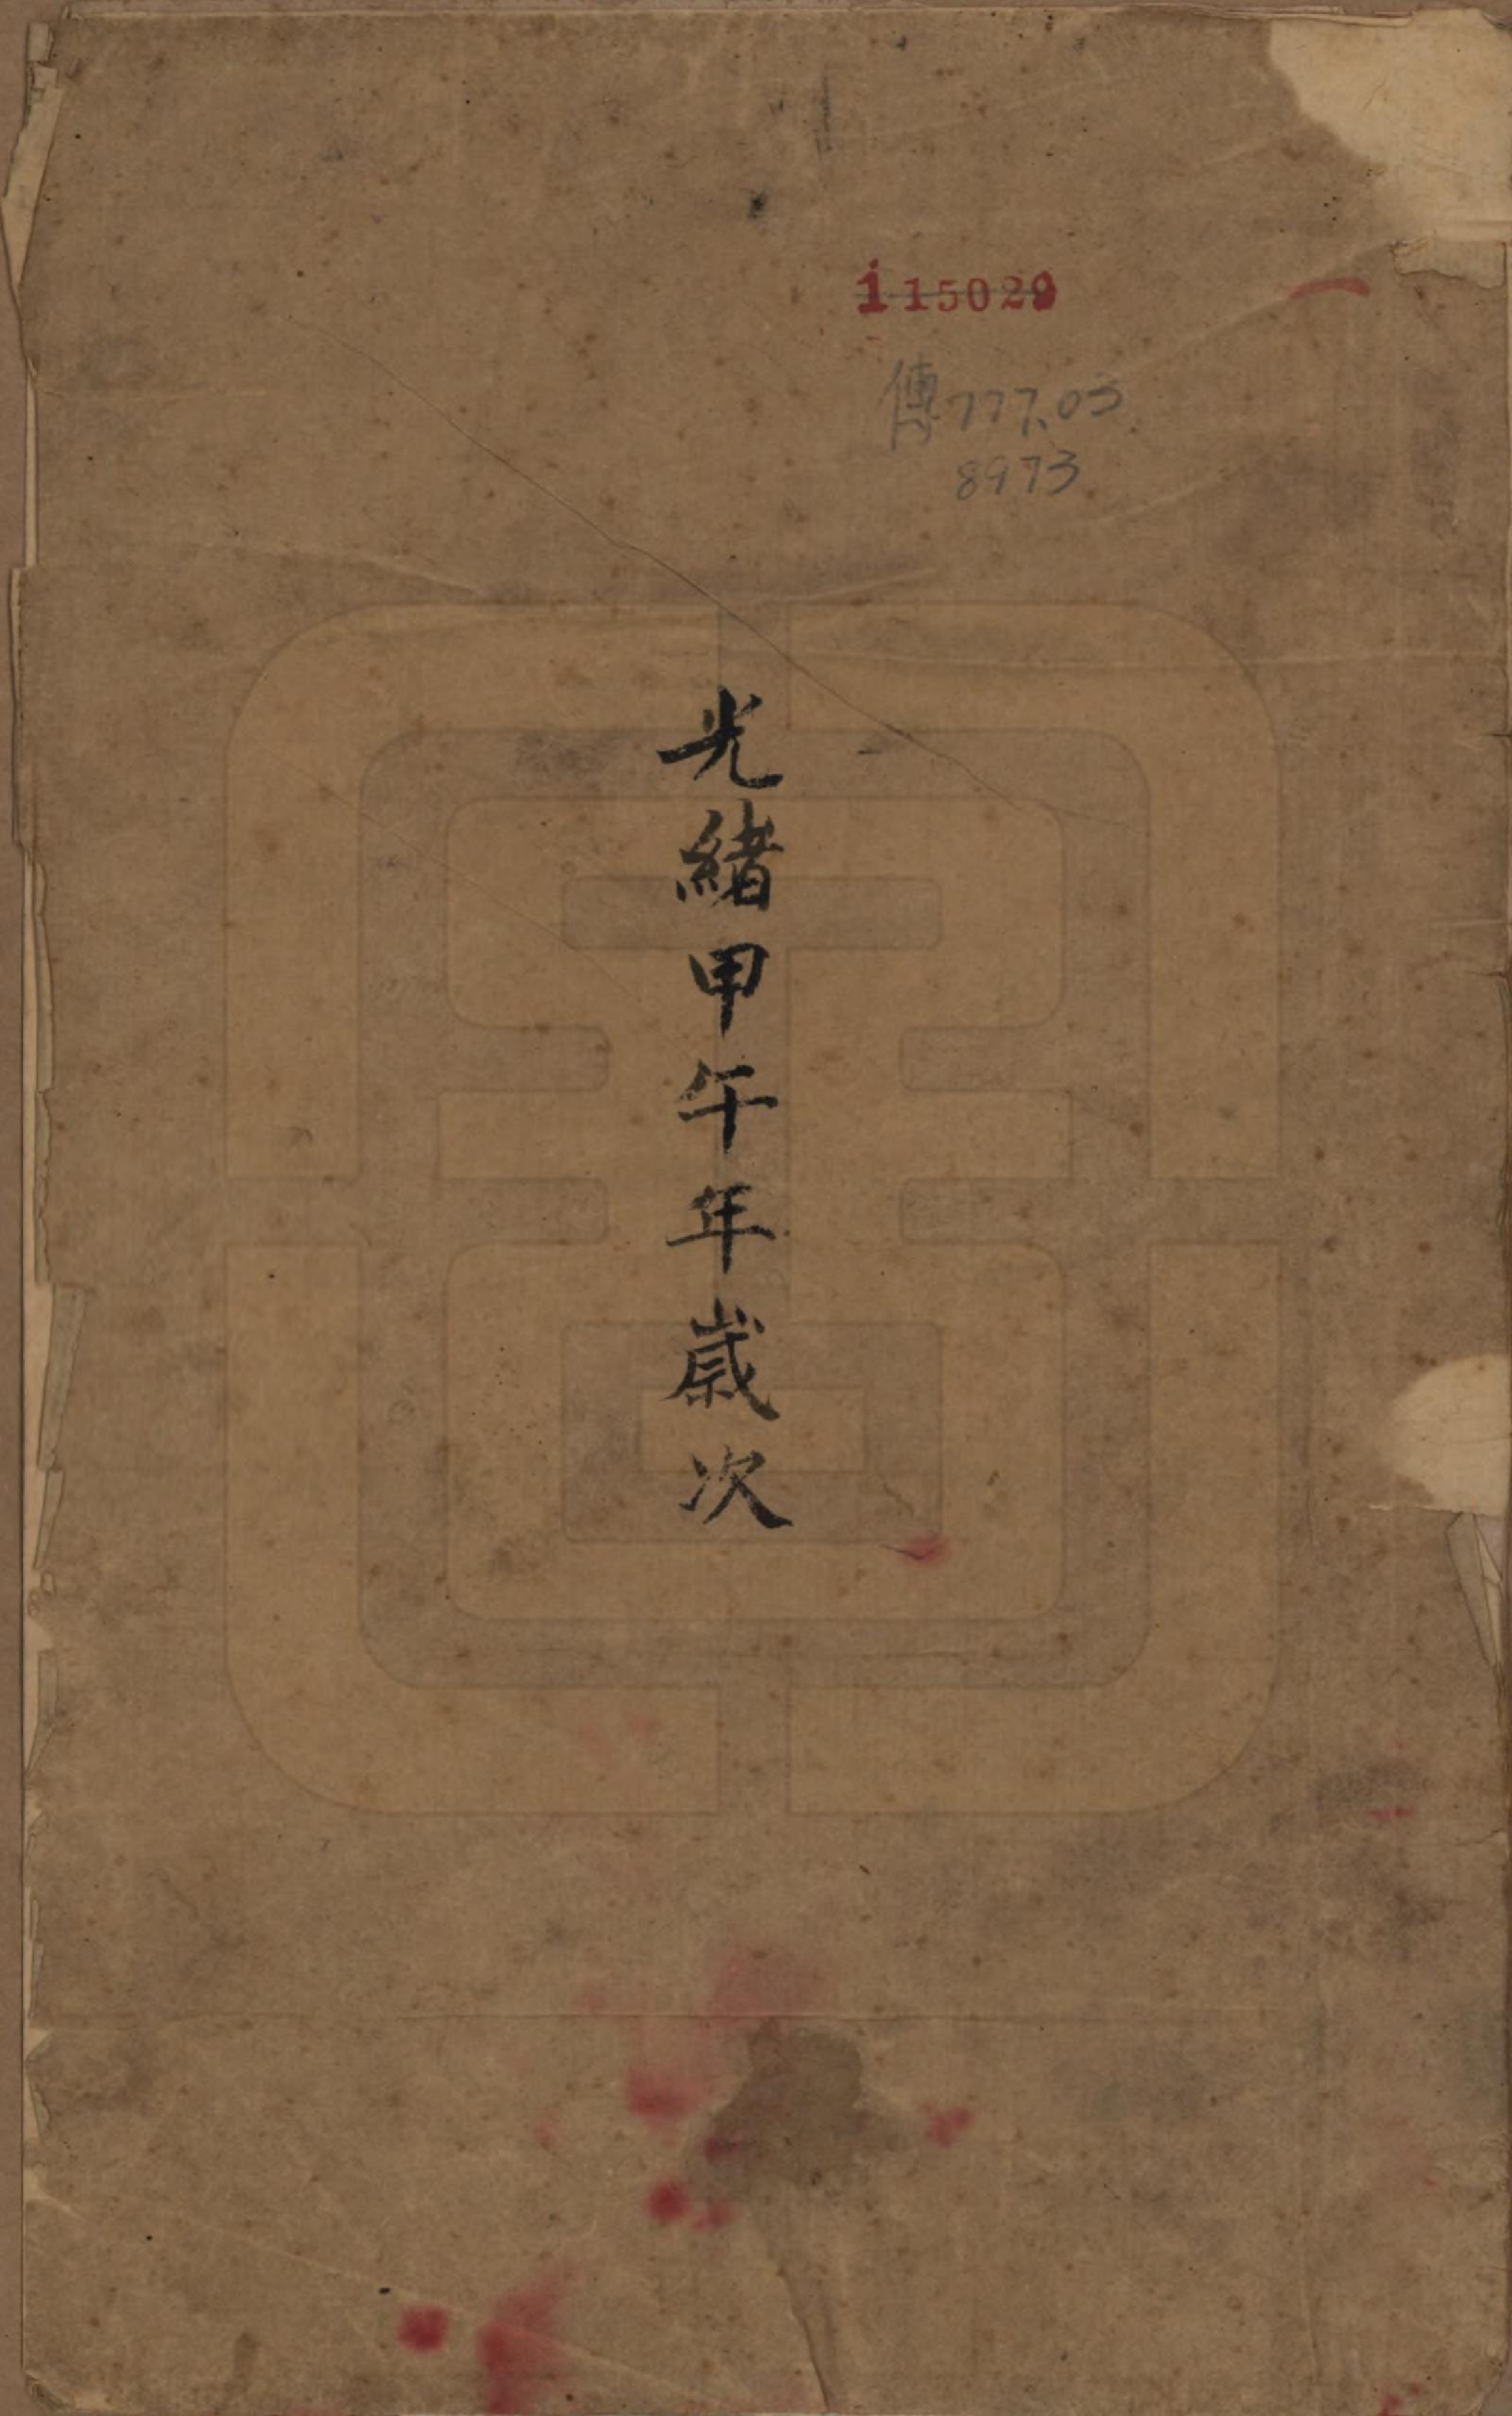 115029
傳777.03
8973
光緒甲午年歲次